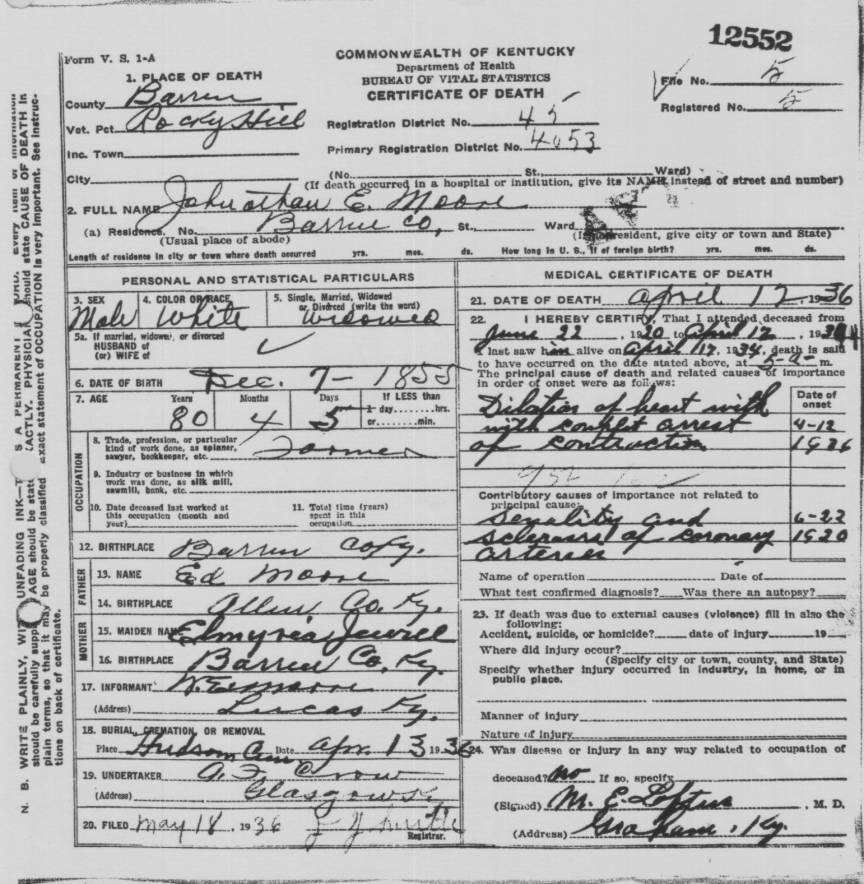 12552
Form V. S. 1-A
COMMONWEALTH OF KENTUCKY
Department of Health
BUREAU OF VITAL STATISTICS
CERTIFICATE OF DEATH
File No. 5
Registered No. 5
1. PLACE OF DEATH
County Barren
Vot. Pct Rocky Hill
Inc. Town
City
Registration District No. 45
Primary Registration District No. 4053
(No. St., Ward)
(If death occurred in a hospital or institution, give its NAME instead of street and number)
2. FULL NAME Johnathan E. Moore
(a) Residence. No. Barren Co, St., Ward
(Usual place of abode) (If nonresident, give city or town and State)
Length of residence in city or town where death occurred yrs. mos. ds. How long in U. S., if of foreign birth? yrs. mos. ds.
PERSONAL AND STATISTICAL PARTICULARS
3. SEX Male
4. COLOR OR RACE White
5. Single, Married, Widowed or Divorced (write the word) Widowed
5a. If married, widowed, or divorced
HUSBAND of
(or) WIFE of
6. DATE OF BIRTH Dec. 7 - 1855
7. AGE Years 80 Months 4 Days 5 If LESS than 1 day hrs. or min.
OCCUPATION
8. Trade, profession, or particular
kind of work done, as spinner,
sawyer, bookkeeper, etc. Farmer
9. Industry or business in which
work was done, as silk mill,
sawmill, bank, etc.
10. Date deceased last worked at
this occupation (month and
year)
11. Total time (years)
spent in this
occupation
12. BIRTHPLACE Barren Co Ky.
FATHER
13. NAME Ed Moore
14. BIRTHPLACE Allen Co. Ky.
MOTHER
15. MAIDEN NAME Elmyria Jewell
16. BIRTHPLACE Barren Co, Ky.
17. INFORMANT
(Address) Lucas Ky.
18. BURIAL, CREMATION, OR REMOVAL
Place Hudson Cem Date Apr. 13 1936
19. UNDERTAKER A. F. Crow
(Address) Glasgow
20. FILED May 18, 1936
Registrar.
MEDICAL CERTIFICATE OF DEATH
21. DATE OF DEATH April 12 1936
22. I HEREBY CERTIFY, That I attended deceased from
June 22, 1920 to April 12, 193
I last saw him alive on April 12, 1934, death is said
to have occurred on the date stated above, at 5-a- m.
The principal cause of death and related causes of importance
in order of onset were as follows:
Date of onset
Dilation of heart with
with complet arrest 4-12
of contraction 1936
Contributory causes of importance not related to
principal cause:
Senality and 6-22
sclerosis of coronary 1920
arteries
Name of operation Date of
What test confirmed diagnosis? Was there an autopsy?
23. If death was due to external causes (violence) fill in also the
following:
Accident, suicide, or homicide? date of injury 19
Where did injury occur?
(Specify city or town, county, and State)
Specify whether injury occurred in industry, in home, or in
public place.
Manner of injury
Nature of injury
24. Was disease or injury in any way related to occupation of
deceased? no If so, specify
(Signed) M. E. Loftus, M. D.
(Address) Graham, Ky.
N. B. WRITE PLAINLY, WITH UNFADING INK—
should be carefully supplied AGE should be stated EXACTLY. PHYSICIANS should state CAUSE OF DEATH in
plain terms, so that it may be properly classified Exact statement of OCCUPATION is very important. See instruc-
tions on back of certificate.